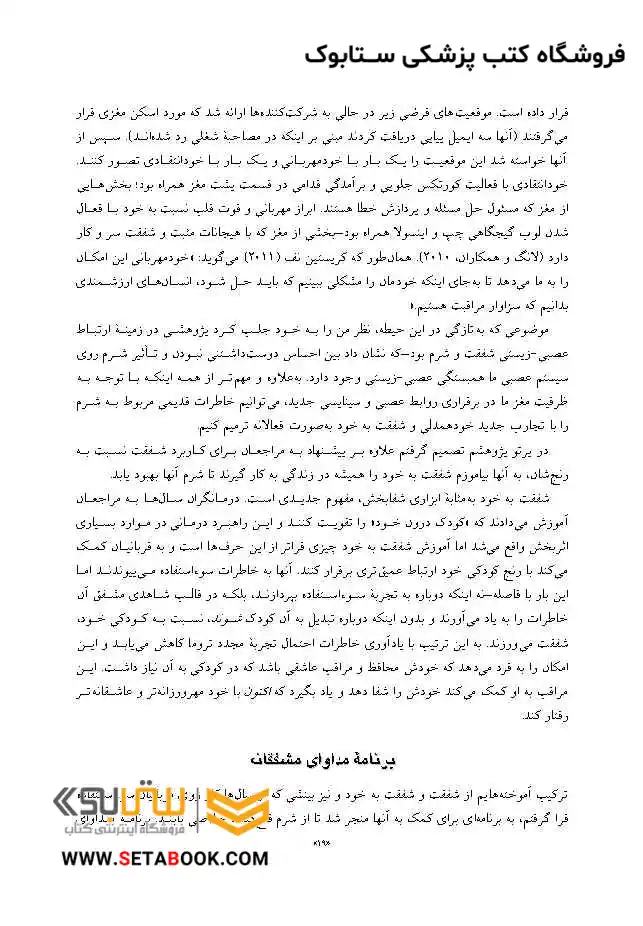 فروشگاه کتب پزشکی ستابوک
قرار داده است. موقعیت‌های فرضی زیر در حالی به شرکت‌کننده‌ها ارائه شد که مورد اسکن مغزی قرار
می‌گرفتند (آنها سه ایمیل پیاپی دریافت کردند مبنی بر اینکه در مصاحبهٔ شغلی رد شده‌اند). سپس از
آنها خواسته شد این موقعیت را یک بار با خودمهربانی و یک بار با خودانتقادی تصور کنند.
خودانتقادی با فعالیت کورتکس جلویی و برآمدگی قدامی در قسمت پشت مغز همراه بود؛ بخش‌هایی
از مغز که مسئول حل مسئله و پردازش خطا هستند. ابراز مهربانی و قوت قلب نسبت به خود با فعال
شدن لوب گیجگاهی چپ و اینسولا همراه بود–بخشی از مغز که با هیجانات مثبت و شفقت سر و کار
دارد (لانگ و همکاران، ۲۰۱۰). همان‌طور که کریستین نف (۲۰۱۱) می‌گوید: «خودمهربانی این امکان
را به ما می‌دهد تا به‌جای اینکه خودمان را مشکلی ببینیم که باید حل شود، انسان‌های ارزشمندی
بدانیم که سزاوار مراقبت هستیم.»
موضوعی که به‌تازگی در این حیطه، نظر من را به خود جلب کرد پژوهشی در زمینهٔ ارتباط
عصبی-زیستی شفقت و شرم بود–که نشان داد بین احساس دوست‌داشتنی نبودن و تأثیر شرم روی
سیستم عصبی ما همبستگی عصبی-زیستی وجود دارد. به‌علاوه و مهم‌تر از همه اینکه با توجه به
ظرفیت مغز ما در برقراری روابط عصبی و سیناپسی جدید، می‌توانیم خاطرات قدیمی مربوط به شرم
را با تجارب جدید خودهمدلی و شفقت به خود به‌صورت فعالانه ترمیم کنیم.
در پرتو پژوهشم تصمیم گرفتم علاوه بر پیشنهاد به مراجعان برای کاربرد شفقت نسبت به
رنج‌شان، به آنها بیاموزم شفقت به خود را همیشه در زندگی به کار گیرند تا شرم آنها بهبود یابد.
شفقت به خود به‌مثابهٔ ابزاری شفابخش، مفهوم جدیدی است. درمانگران سال‌ها به مراجعان
آموزش می‌دادند که «کودک درون خود» را تقویت کنند و این راهبرد درمانی در موارد بسیاری
اثربخش واقع می‌شد اما آموزش شفقت به خود چیزی فراتر از این حرف‌ها است و به قربانیان کمک
می‌کند با رنج کودکی خود ارتباط عمیق‌تری برقرار کنند. آنها به خاطرات سوءاستفاده می‌پیوندند اما
این بار با فاصله–نه اینکه دوباره به تجربهٔ سوءاستفاده بپردازند، بلکه در قالب شاهدی مشفق آن
خاطرات را به یاد می‌آورند و بدون اینکه دوباره تبدیل به آن کودک شوند، نسبت به کودکی خود،
شفقت می‌ورزند. به این ترتیب با یادآوری خاطرات احتمال تجربهٔ مجدد تروما کاهش می‌یابد و این
امکان را به فرد می‌دهد که خودش محافظ و مراقب عاشقی باشد که در کودکی به آن نیاز داشت. این
مراقب به او کمک می‌کند خودش را شفا دهد و یاد بگیرد که اکنون با خود مهرورزانه‌تر و عاشقانه‌تر
رفتار کند.
برنامهٔ مداوای مشفقانه
ترکیب آموخته‌هایم از شفقت و شفقت به خود و نیز بینشی که
فرا گرفتم، به برنامه‌ای برای کمک به آنها منجر شد تا از شرم
ستابوک
فروشگاه اینترنتی کتاب
«۱۹»
WWW.SETABOOK.COM